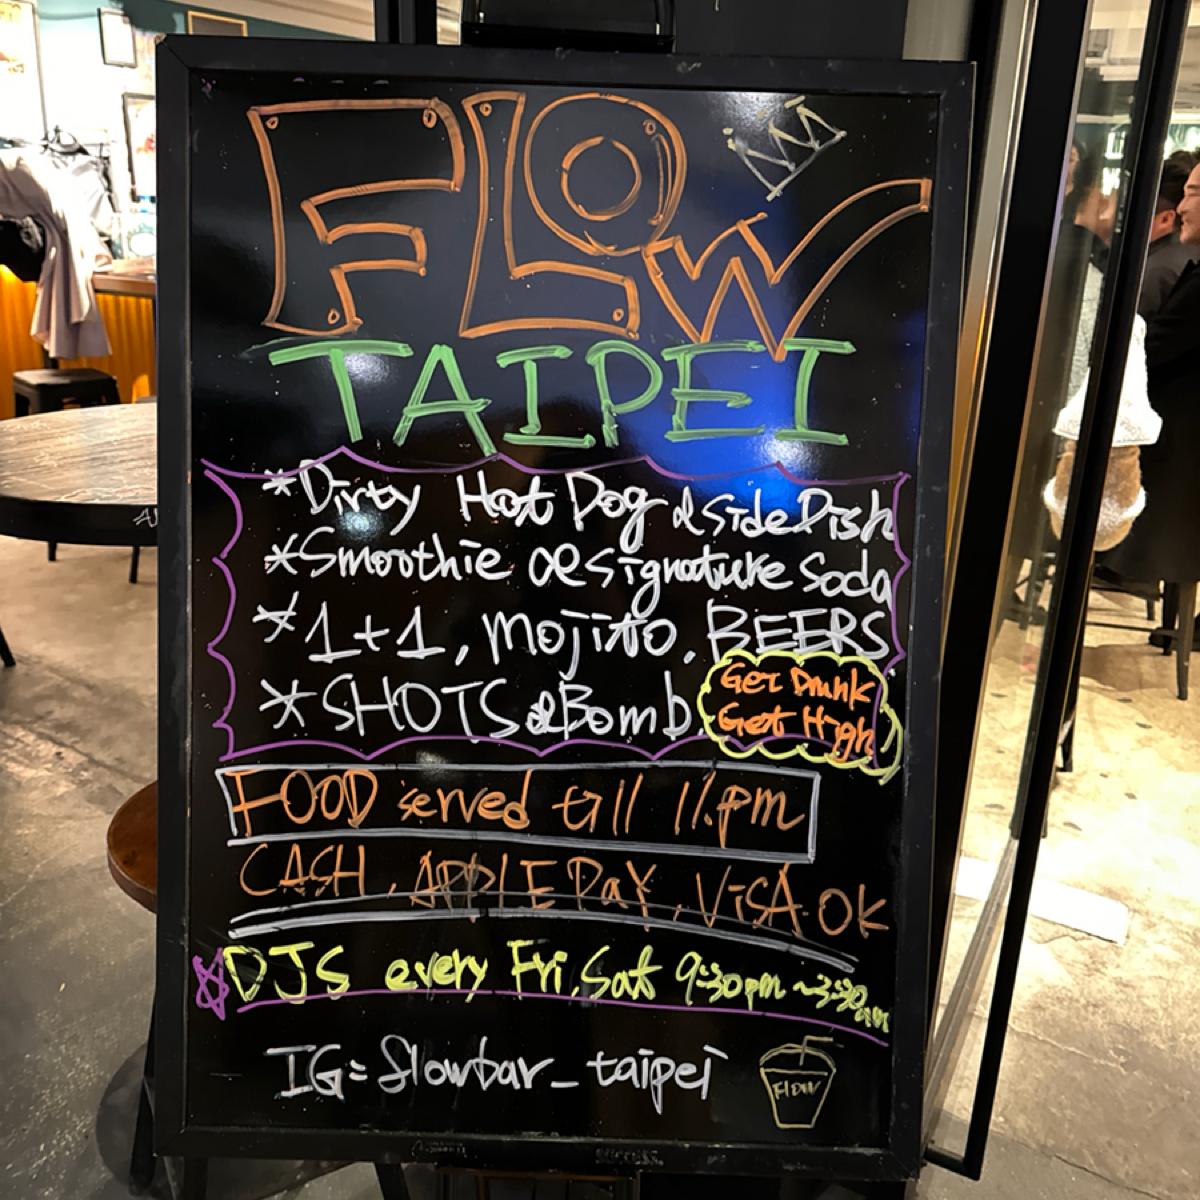 FLOW
TAIPEI
*Dirty Hot Dog & Side Dish
*Smoothie & Signature Soda
*1+1, Mojito, BEERS
*SHOTS & Bomb.
Get Drunk
Get High
FOOD served till 11.pm
CASH, APPLE PaY, ViSA. OK
DJS every Fri, Sat 9:30pm ~3:30am
IG= flowbar_taipei
FLOW